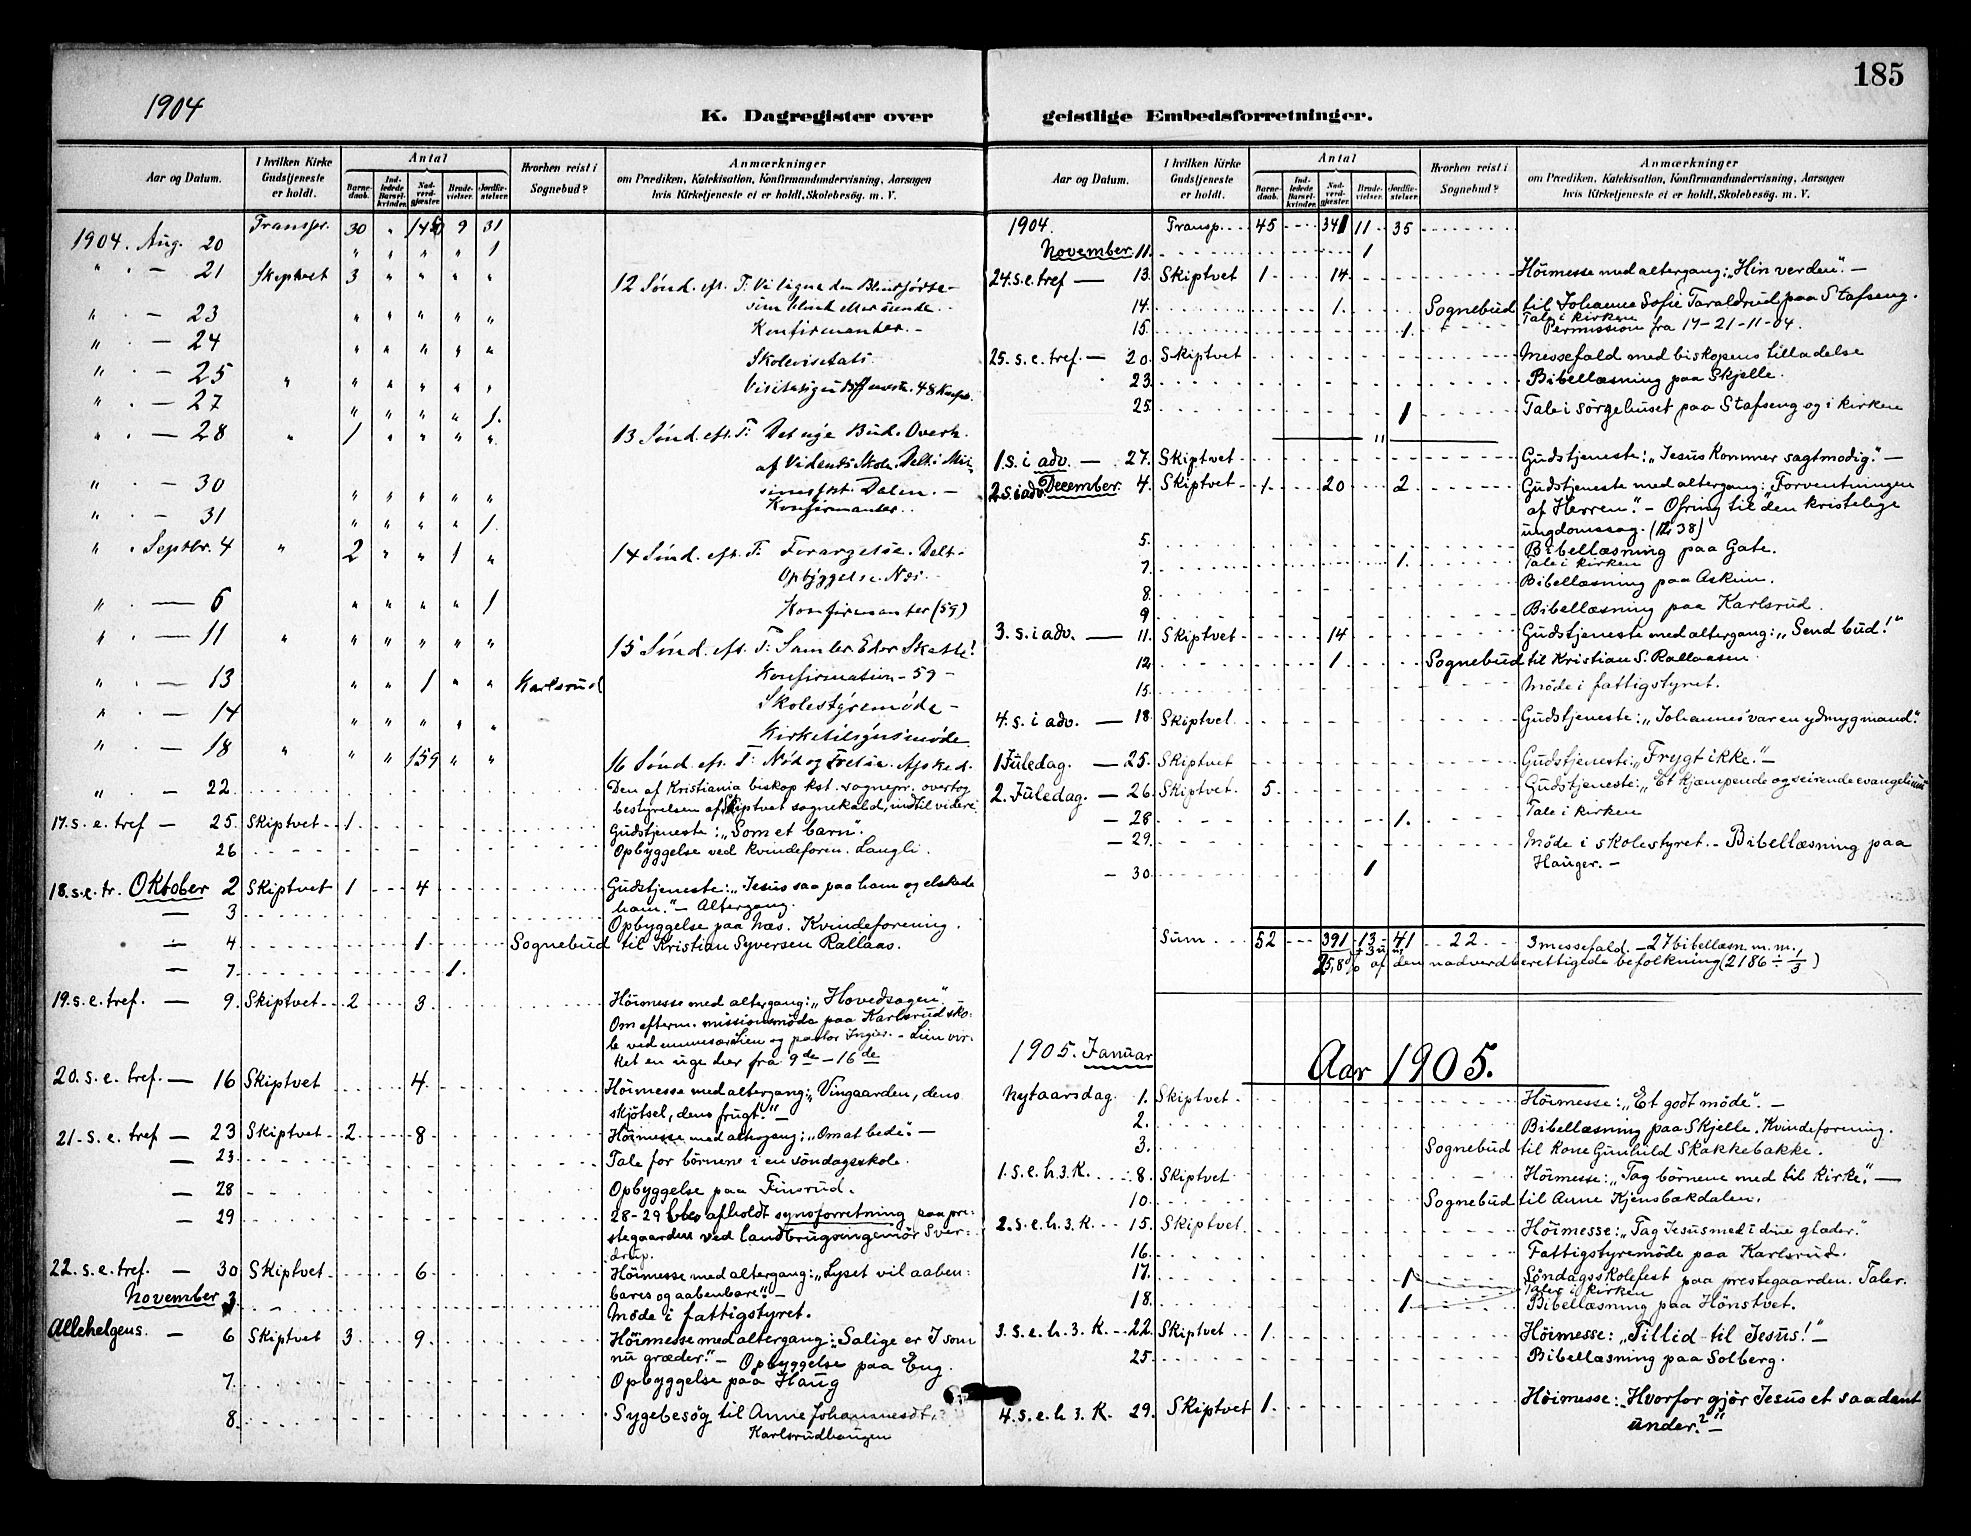 185
1904
K. Dagregister over
Aar og Datum.
I hvilken Kirke Gudstjeneste er holdt.
Antal
Barnedaab.
Indledede Barselkvinder.
Nadverdgjæster.
Brudevielser.
Jordfæstelser.
Hvorhen reist i Sognebud?
Anmærkninger
om Prædiken, Katekisation, Konfirmandundervisning, Aarsagen
hvis Kirketjeneste ei er holdt, Skolebesøg. m. V.
1904. Aug. 20 Transpr. 30 " 145 9 31
" " " " 1
" . — 21 Skiptvet 3 " " " " 12 Sønd. eft. T: Vi ligne den Blindfødte
" . — 23 " " " " " Konfirmanter. –
" . — 24 " " " " " Skolevisitats
" . — 25 " " " " " " Visitatsgudstjeneste. 48 Konf.
" . — 27 " " " " 1.
" . — 28 " 1 " " " " 13 Sønd. eft. T: Det nye Bud. Overh.
af Vidends Skole. Delt. i Mis-
sionsfest. Dalen. –
" . — 30 " " " " " Konfirmanter..
" . — 31 " " " " 1.
" . Septbr. 4 " 2 " " 1 " 14 Sønd. eft. T: Forargelse. Delt.
Opbyggelse. Næs. –
" . — 6 " " " " 1 Konfirmanter (59)
" . — 11 " " " " " " 15 Sønd. eft. T: Samler Eder Skatte!
Konfirmation – 59 –
" . — 13 " " 1 " " Karlsrud Skolestyremøde –
" . — 14 " " " " " Kirketilsynsmøde
" . — 18 " " " 159 " " 16 Sønd. eft. T: Nød og Frelse. Afsked.
" . — 22. Den af Kristiania biskop kst. sognepr. overtog
bestyrelsen af Skiptvet sognekald, indtil videre
17. s. e. tref — 25. Skiptvet 1 Gudstjeneste: „Som et barn".
26 Opbyggelse ved kvindeforen. Langli.
18. s. e. tr. Oktober 2 Skiptvet 1 4 Gudstjeneste: „Jesus saa paa ham og elskede
ham." – Altergang.
— 3 Opbyggelse paa Næs. Kvindeforening.
— 4 1 Sognebud til Kristian Syversen Rallaas.
— 7 1.
19. s. e. tref. — 9. Skiptvet 2 3 Høimesse med altergang: „Hovedsagen".
Om efterm. missionsmøde paa Karlsrud sko-
le ved emissær Lien og pastor Ingier. – Lien vir-
ket en uge her fra 9de – 16de
20. s. e. tref. — 16 Skiptvet 4 Høimesse med altergang: „Vingaarden, dens
skjøtsel, dens frugt." –
21. s. e. tref — 23 Skiptvet 2 8 Høimesse med altergang: „Om at bede". –
— 23 Tale for børnene i en søndagsskole.
— 28 Opbyggelse paa Finsrud.
— 29 28-29 blev afholdt synsforretning paa pre-
stegaarden ved landbrugsingeniør Sver-
drup.
22. s. e. tref. — 30 Skiptvet 6 Høimesse med altergang: „Lyset vil aaben-
bares og aabenbare". –
November 3 Møde i fattigstyret.
Allehelgens. — 6 Skiptvet 3 9. Høimesse med altergang: „Salige er I som
nu græder." – Opbyggelse paa Eng.
7. Opbyggelse paa Haug
8. Sygebesøg til Anne Johannesdt.
Karlsrudhaugen
geistlige Embedsforretninger.
Aar og Datum.
I hvilken Kirke Gudstjeneste er holdt.
Antal
Barnedaab.
Indledede Barselkvinder.
Nadverdgjæster.
Brudevielser.
Jordfæstelser.
Hvorhen reist i Sognebud?
Anmærkninger
om Prædiken, Katekisation, Konfirmandundervisning, Aarsagen
hvis Kirketjeneste ei er holdt, Skolebesøg. m. V.
1904. Transp. 45 341 11 35
November 11. 1
24. s. e. tref — 13. Skiptvet 1 14 Høimesse med altergang: „Hin verden". –
14. 1 Sognebud til Johanne Sofie Taraldrud paa Stafseng.
15 1. Tale i kirken
Permission fra 17-21-11-04.
25. s. e. tref. — 20. Skiptvet Messefald med biskopens tilladelse
23. Bibellæsning paa Skjelle.
25. 1 Tale i sørgehuset paa Stafseng og i kirken
11
1 s. i adv. — 27. Skiptvet Gudstjeneste: „Jesus kommer sagtmodig." –
2. s. i adv. December 4. Skiptvet 1 20 2 Gudstjeneste med altergang: Forventningen
af Herren". – Ofring til den kristelige
ungdomssag. (12,38)
5. Bibellæsning paa Gate.
7. 1. Tale i kirken
8. Bibellæsning paa Askim.
9 Bibellæsning paa Karlsrud.
3. s. i adv. — 11. Skiptvet 14 Gudstjeneste med altergang: „Send bud!"
12 1 Sognebud til Kristian S. Rallaasen
15. Møde i fattigstyret.
4. s. i adv. — 18. Skiptvet Gudstjeneste: „Johannes var en ydmyg mand."
1 Juledag. — 25. Skiptvet Gudstjeneste: „Frygt ikke". –
2. Juledag — 26. Skiptvet 5 Gudstjeneste: „Et kjæmpende og seirende evangelium
— 28 1. Tale i kirken
— 29. Møde i skolestyret. – Bibellæsning paa
Hauger. –
— 30 1
Sum 52 391 13 41 22 3 messefald. – 27 bibellæsn. m. m.
25,8 % af den nadverdberettigede befolkning (2186 ÷ 1/3)
1905. Januar
Aar 1905.
Nytaarsdag 1. Skiptvet Høimesse: „Et godt møde". –
2. Bibellæsning paa Skjelle. Kvindeforening.
3. Sognebud til Kone Gunhild Skakkebakke.
1. s. e. h. 3. K. 8. Skiptvet Høimesse: „Tag børnene med til kirke". –
10. Sognebud til Anne Kjensbakdalen.
2. s. e. h. 3. K. 15. Skiptvet Høimesse: „Tag Jesus med i dine glæder."
16. Fattigstyremøde paa Karlsrud.
17. 1 Søndagsskolefest paa prestegaarden. Taler.
Taler i kirken
18. 1 Bibellæsning paa Hønstvet.
3. s. e. h. 3. K. 22. Skiptvet 1 Høimesse: „Tillid til Jesus!" –
25. Bibellæsning paa Solberg.
4. s. e. h. 3. K. 29. Skiptvet 1 Høimesse: „Hvorfor gjør Jesus et saadant
under?" –